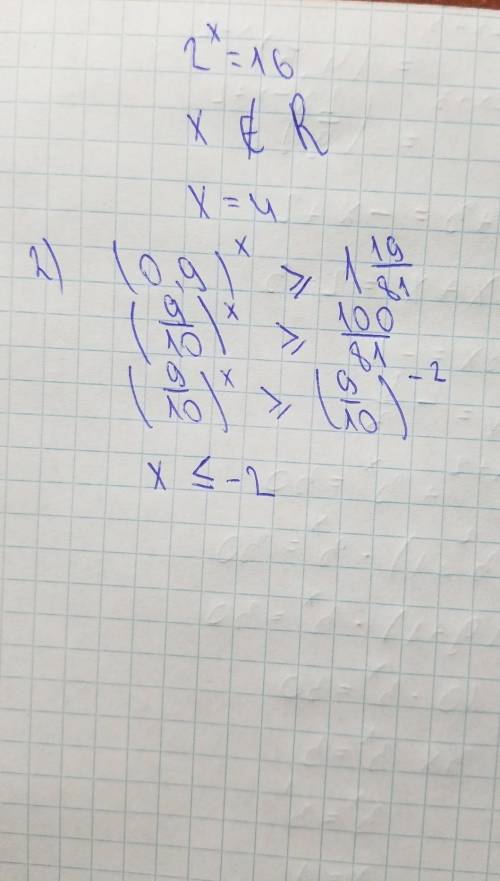 2^x = 16
x ∉ R
x = 4
2) (0,9)^x ⩾ 1 19/81
(9/10)^x ⩾ 100/81
(9/10)^x ⩾ (9/10)^-2
x ≤ -2